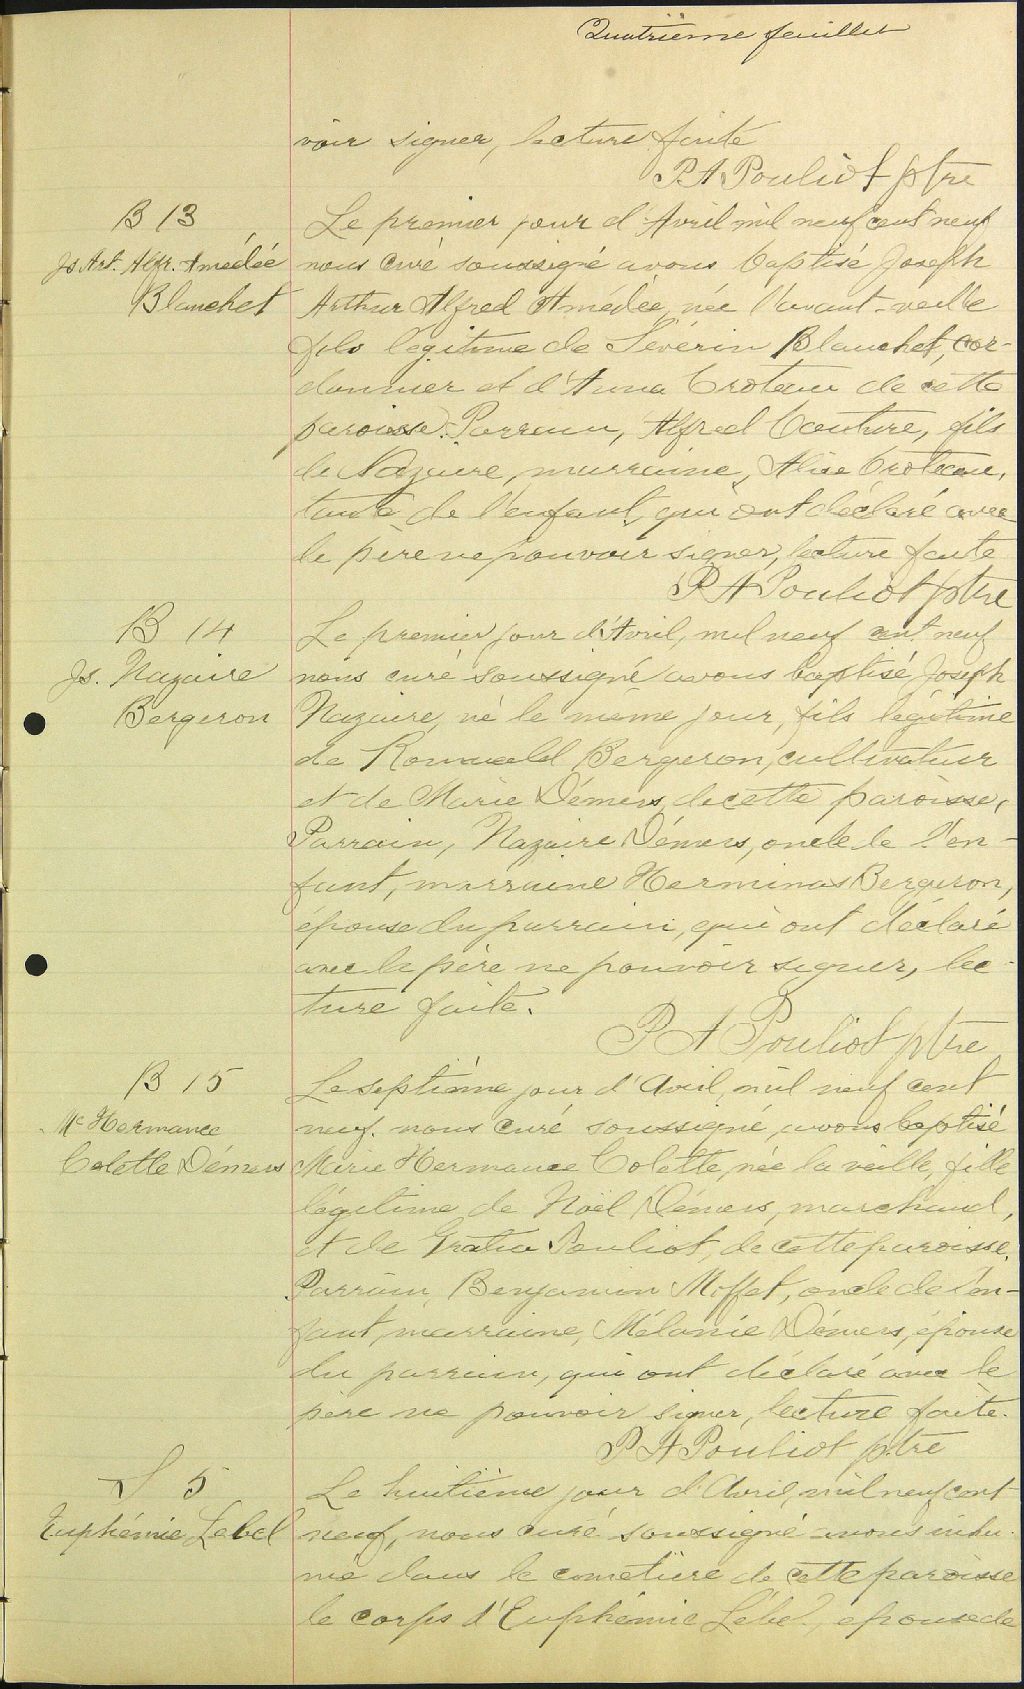 Quatrième feuillet
voir signer, lecture faite
P A Pouliot ptre
B 13
Js Art. Alfr. Amédée
Blanchet
Le premier jour d'Avril mil neuf cent neuf
nous curé soussigné avons baptisé Joseph
Arthur Alfred Amédée, née l'avant-veille
fils légitime de Sévérin Blanchet, cor-
donnier et d'Anna Croteau de cette
paroisse. Parrain, Alfred Couture, fils
de Nazaire, marraine, Alice Croteau,
tante de l'enfant, qui ont déclaré avec
le père ne pouvoir signer, lecture faite
P A Pouliot ptre
B 14
Js. Nazaire
Bergeron
Le premier jour d'Avril, mil neuf cent neuf
nous curé soussigné avons baptisé Joseph
Nazaire, né le même jour, fils légitime
de Romuald Bergeron, cultivateur
et de Marie Démers, de cette paroisse,
Parrain, Nazaire Démers, oncle de l'en-
fant, marraine Herminas Bergeron,
épouse du parrain, qui ont déclaré
avec le père ne pouvoir signer, lec-
ture faite.
P A Pouliot ptre
B 15
Me Hermance
Colette Démers
Le septième jour d'Avril, mil neuf cent
neuf. nous curé soussigné, avons baptisé
Marie Hermance Colette, née la veille, fille
légitime de Noël Démers, marchand,
et de Gratia Pouliot, de cette paroisse.
Parrain, Benjamin Moffet, oncle de l'en-
fant, marraine, Mélanie Démers, épouse
du parrain, qui ont déclaré avec le
père ne pouvoir signer, lecture faite.
P A Pouliot ptre
S 5
Euphémie Lebel
Le huitième jour d'Avril, mil neuf cent
neuf, nous curé soussigné avons inhu-
mé dans le cimetière de cette paroisse
le corps d'Euphémie Lebel, épouse de